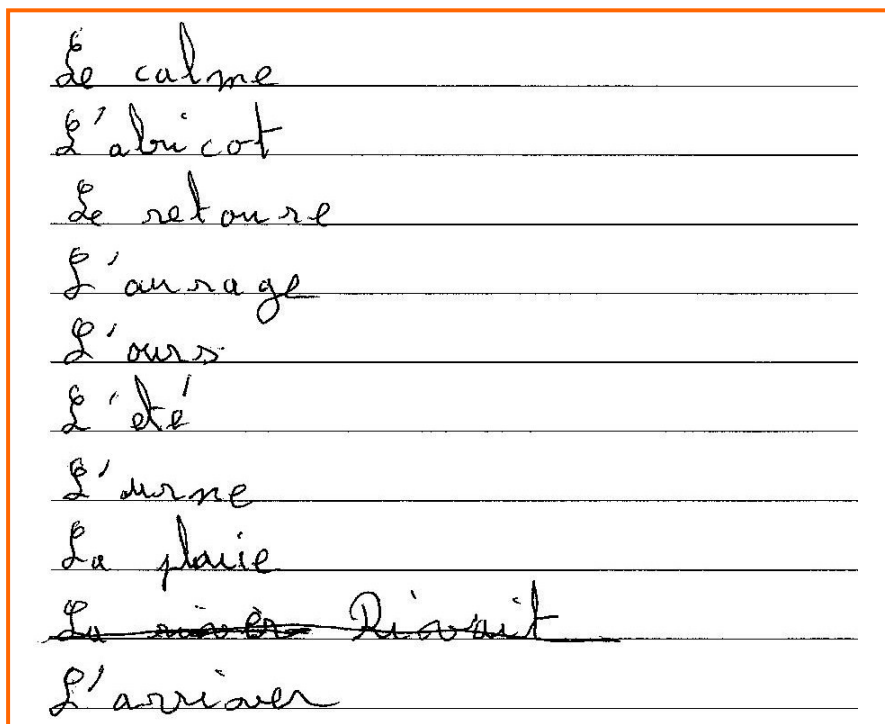 Le calme
L'abricot
Le retoure
L'aurage
L'ours
L'eté
L'urne
La plaie
La rivèr Rivait
L'arriver